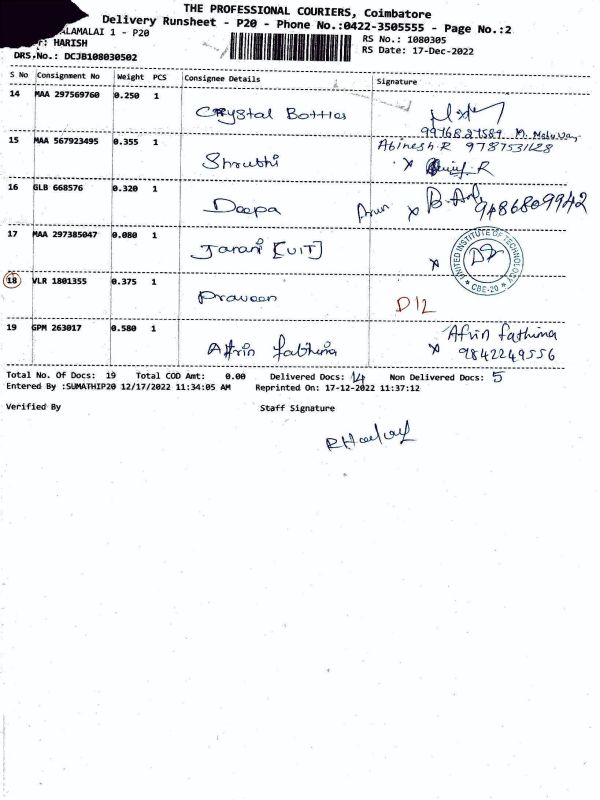 THE PROFESSIONAL COURIERS, Coimbatore
Delivery Runsheet - P20 - Phone No.:0422-3505555 - Page No.:2
ALAMALAI 1 - P20
RS No.: 1080305
: HARISH
RS Date: 17-Dec-2022
DRS No.: DCJB108030502
S No Consignment No Weight PCS Consignee Details Signature
14 MAA 297569760 0.250 1 Crystal Bottles
9976827589
15 MAA 567923495 0.355 1 Shruthi Abinesh.R 9787531128
x R
16 GLB 668576 0.320 1 Deepa Arun x 9486809942
17 MAA 297385047 0.080 1 Tarani [UIT] x
UNITED INSTITUTE OF TECHNOLOGY
* CBE-20 *
18 VLR 1801355 0.375 1 Praveen D12
19 GPM 263017 0.580 1 Afrin fathima Afrin fathima
x 9842249556
Total No. Of Docs: 19 Total COD Amt: 0.00 Delivered Docs: 14 Non Delivered Docs: 5
Entered By :SUMATHIP20 12/17/2022 11:34:05 AM Reprinted On: 17-12-2022 11:37:12
Verified By Staff Signature